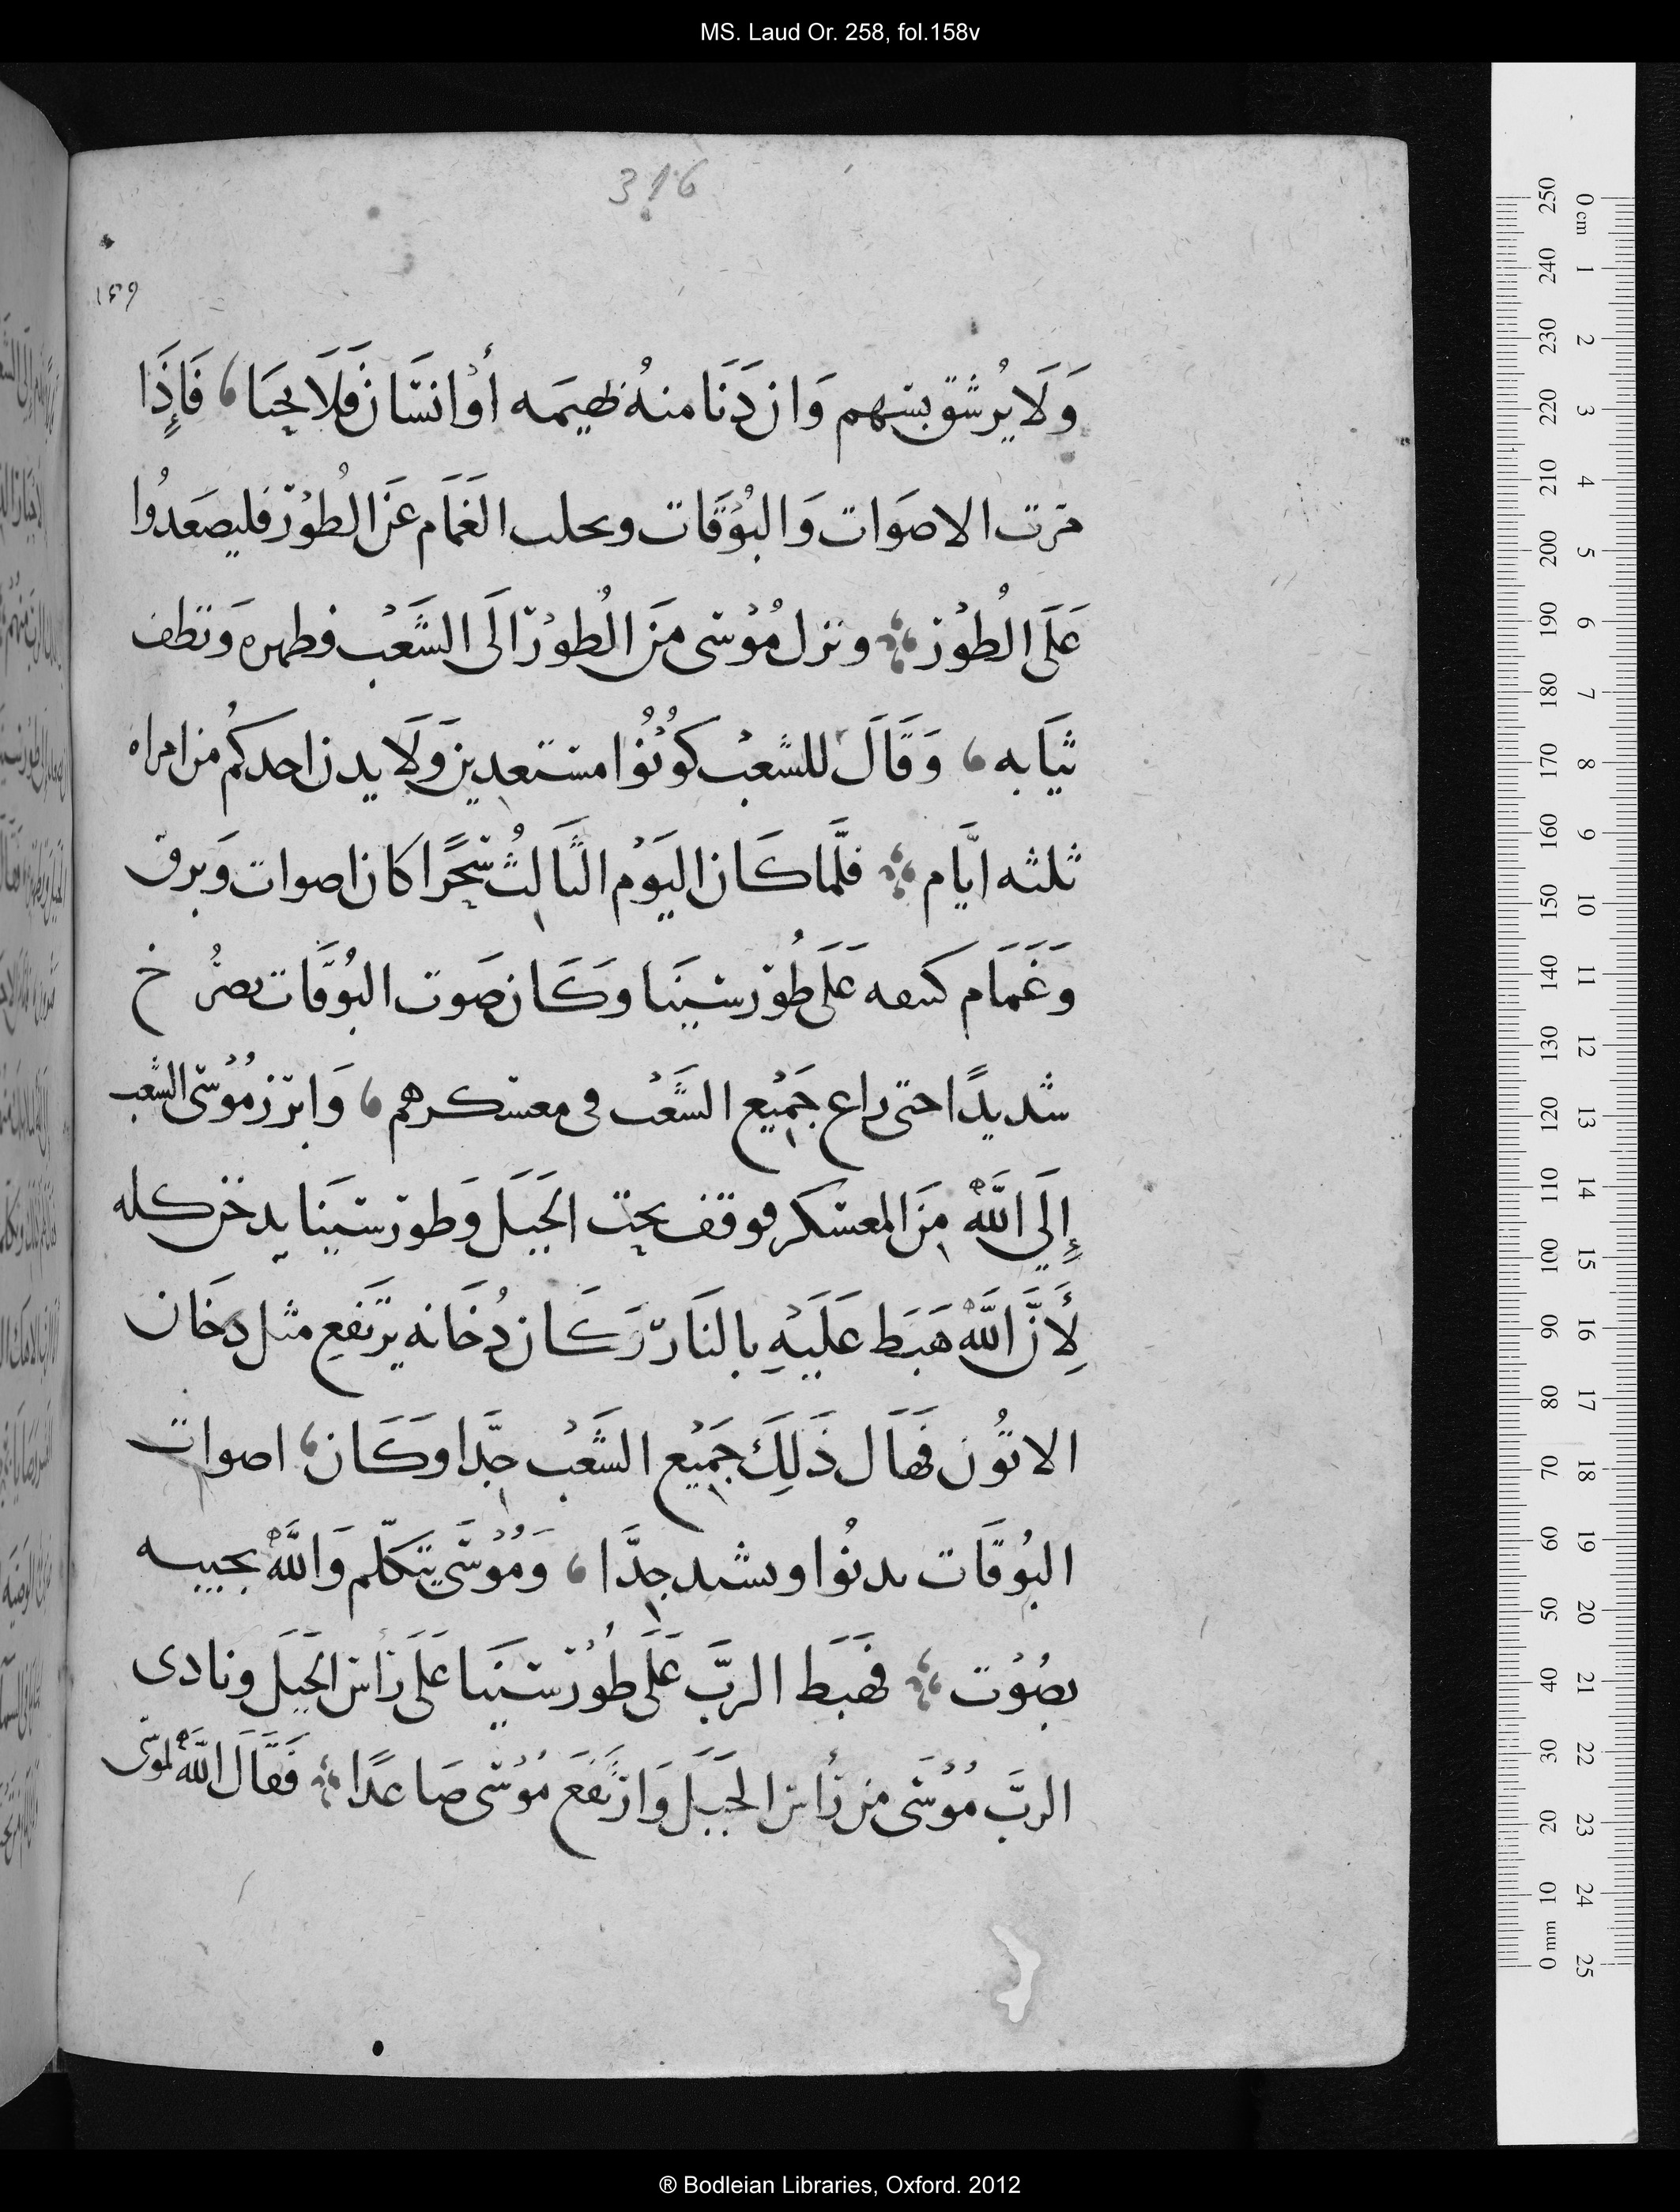 MS. Laud Or. 258, fol.158v
316
١٥٩
وَلَا يُرشَق بسَهم وَان دَنَا منهُ بهيمَه أوْ انسَان فَلَا يحيَا، فَإِذَا
مرّت الاصوَات وَالبُوْقَات وىحلت الغمَام عَن الطُوْر فليصَعدُوا
عَلَى الطُوْر ؞ ونزل مُوْسَى مَن الطُورْ الَى الشَّعْب فطهره وَنظف
ثيَابه، وَقَالَ للشَّعْب كوُنُوْا مستعدين وَلَا يدن احدكُم من امراه
ثلثه ايَّام ؞ فلَّما كَان اليَوْم الثَالثُ سَّحَرًا كان اصوات وَبرق
وَغمَام كىىفه عَلَى طُوْر سيْنَا وَكَان صَوت البُوْقَات ىصرُخ
شديدًا حتى راع جَمِيْع الشَّعْب فى معسكرهم، وَابرَز مُوْسَى الشَّعب
إِلَي اللَّه مَن المعسَكر فوقف تحت الجَبَل وَطور سيْنَا يدخن كله
لِأَنَّ اللَّه هَبَط عَلَيْهِ بالنَار وَكَان دُخَانه يرَتفع مثل دخَان
الاتُون فهَال ذَلِكَ جَمِيْع الشَّعْب جدَّا وَكَان، اصوات
البُوقَات ىدنُوا وىشىد جدَّا، وَمُوْسَى يتكلّم وَاللَّه يجيبه
بصَوُت ؞ فهَبَط الربَّ عَلَى طُوْر سيْنَا عَلَى رَاس الجَبَل ونادى
الربَّ مُوْسَى من رَأس الجَبَل وَارتَفَع مُوْسَى صَاعدًا ؞ فَقَالَ اللَّه لموسَى
0 cm 1 2 3 4 5 6 7 8 9 10 11 12 13 14 15 16 17 18 19 20 21 22 23 24 25
250 240 230 220 210 200 190 180 170 160 150 140 130 120 110 100 90 80 70 60 50 40 30 20 10 0 mm
® Bodleian Libraries, Oxford. 2012